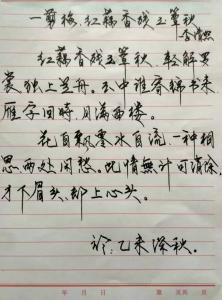 一剪梅·红藕香残玉簟秋
李清照
红藕香残玉簟秋。轻解罗
裳,独上兰舟。云中谁寄锦书来,
雁字回时,月满西楼。
花自飘零水自流。一种相
思,两处闲愁。此情無计可消除,
才下眉头,却上心头。
乙未深秋。
年 月 日
第 页 共 页